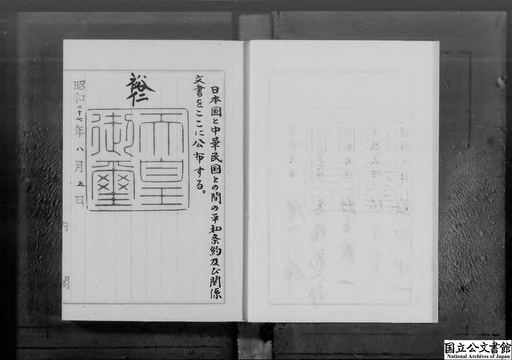 日本国と中華民国との間の平和条約及び関係
文書をここに公布する。
裕仁
天皇
御璽
昭和二十七年八月五日
内閣
国立公文書館
National Archives of Japan